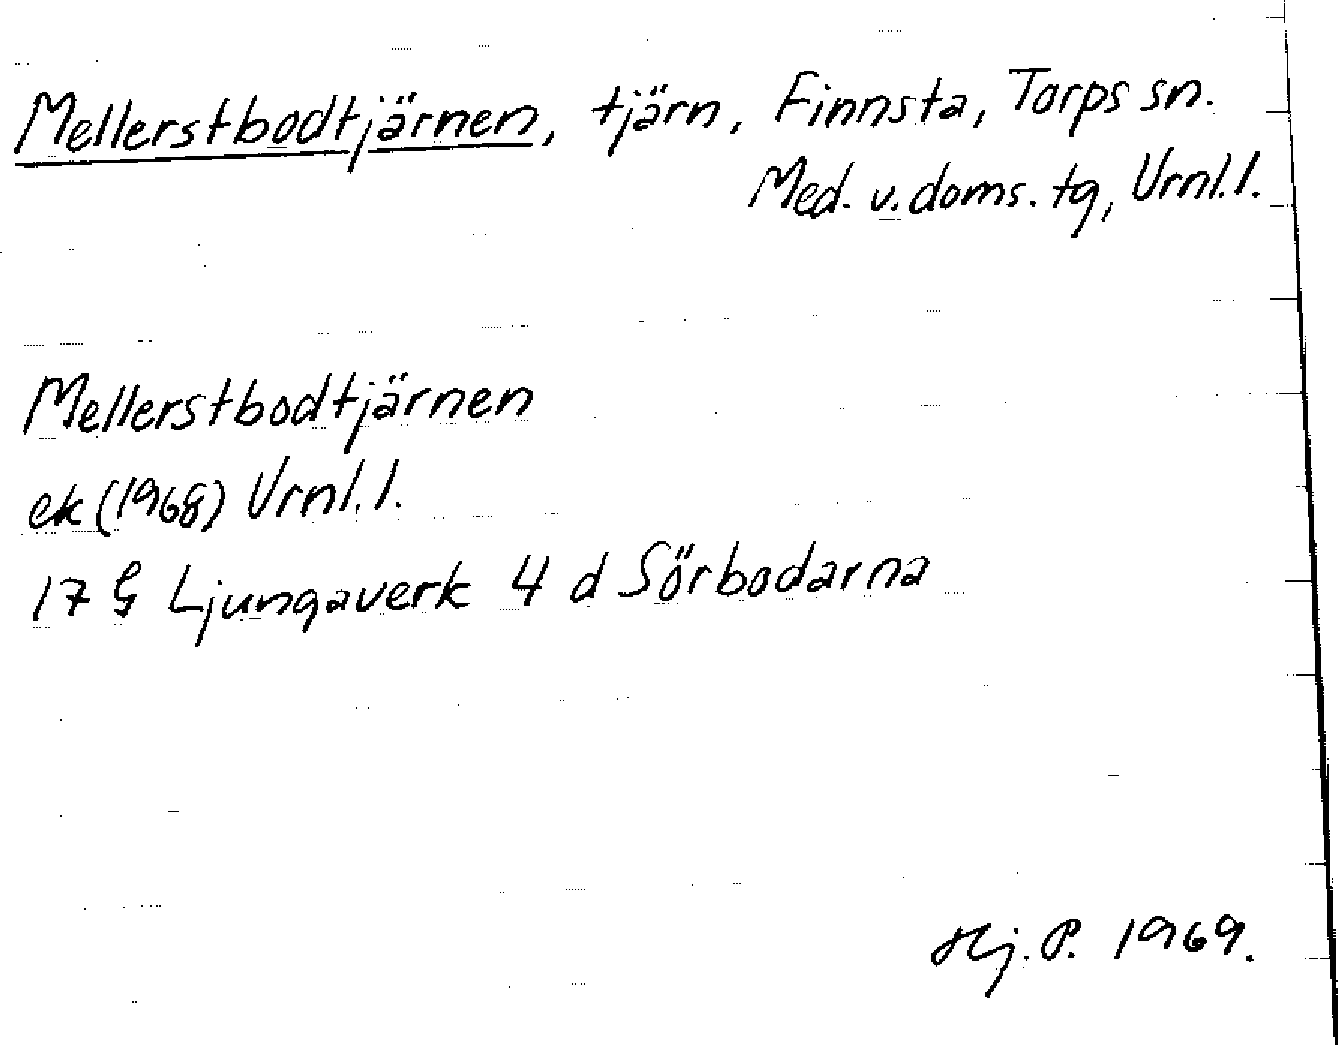 Mellerstbodtjärnen, tjärn, Finnsta, Torps sn.
Med. v. doms. tg, Vrnl. l.
Mellerstbodtjärnen
ek (1968) Vrnl. l.
17 G Ljungaverk 4 d Sörbodarna
Hj. P. 1969.